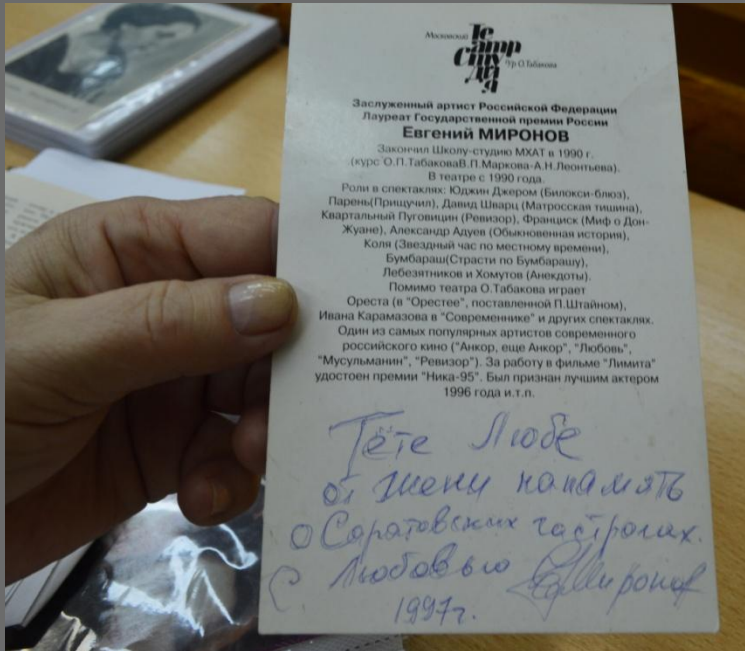 Московский
Театр
Студия
п/р О.Табакова
Заслуженный артист Российской Федерации
Лауреат Государственной премии России
Евгений МИРОНОВ
Закончил Школу-студию МХАТ в 1990 г.
(курс О.П.ТабаковаВ.П.Маркова-А.Н.Леонтьева).
В театре с 1990 года.
Роли в спектаклях: Юджин Джером (Билокси-блюз),
Парень(Прищучил), Давид Шварц (Матросская тишина),
Квартальный Пуговицин (Ревизор), Франциск (Миф о Дон-
Жуане), Александр Адуев (Обыкновенная история),
Коля (Звездный час по местному времени),
Бумбараш(Страсти по Бумбарашу),
Лебезятников и Хомутов (Анекдоты).
Помимо театра О.Табакова играет
Ореста (в "Орестее", поставленной П.Штайном),
Ивана Карамазова в "Современнике" и других спектаклях.
Один из самых популярных артистов современного
российского кино ("Анкор, еще Анкор", "Любовь",
"Мусульманин", "Ревизор"). За работу в фильме "Лимита"
удостоен премии "Ника-95". Был признан лучшим актером
1996 года и.т.п.
Тёте Любе
от Жени напамять
о Саратовских гастролях.
С Любовью ЕМиронов
1997г.